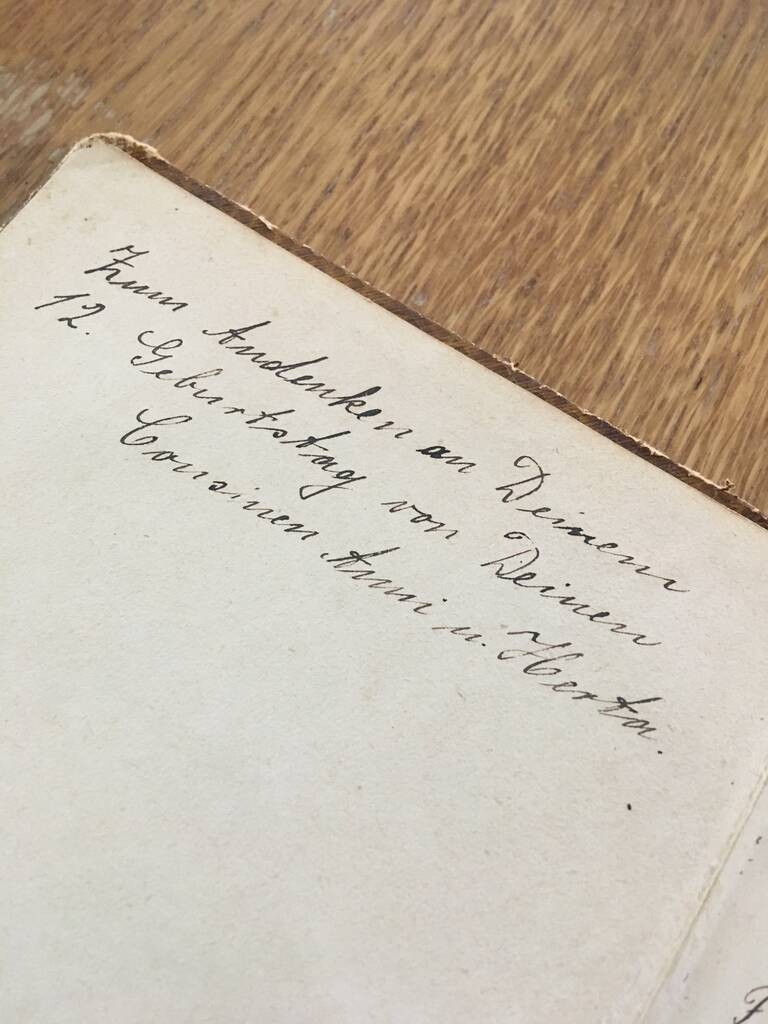 Zum Andenken an Deinem
12. Geburtstag von Deinen
Cousinen Anni u. Herta.